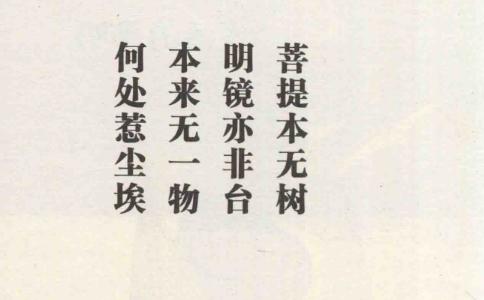 菩提本无树
明镜亦非台
本来无一物
何处惹尘埃